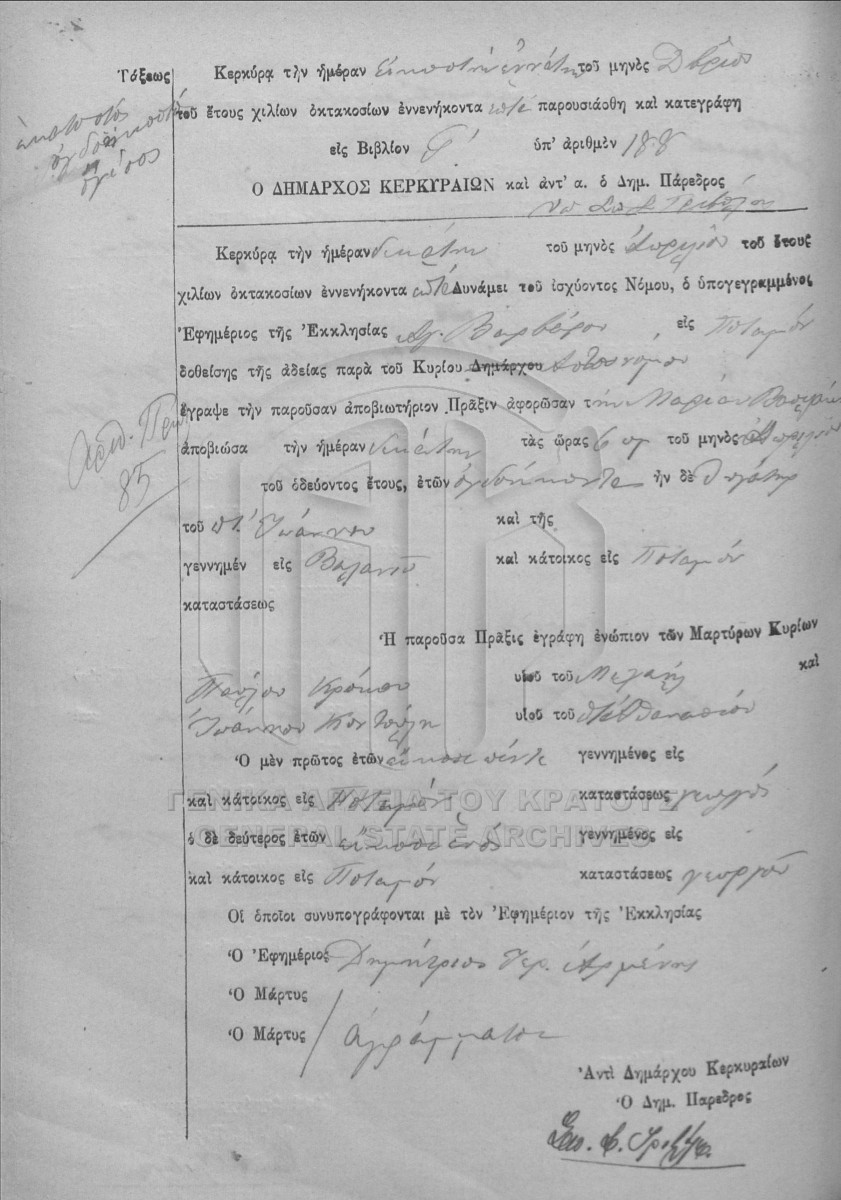 Τάξεως
ἑκατοστός
ὀγδοηκοστός
ὄγδοος
Κερκύρᾳ τὴν ἡμέραν εἰκοστὴν ἐννάτην τοῦ μηνὸς Δβρίου
τοῦ ἔτους χιλίων ὀκτακοσίων ἐννενήκοντα ἑπτὰ παρουσιάσθη καὶ κατεγράφη
εἰς Βιβλίον ὑπ' ἀριθμὸν 188
Ο ΔΗΜΑΡΧΟΣ ΚΕΡΚΥΡΑΙΩΝ καὶ ἀντ' α. ὁ Δημ. Πάρεδρος
Κερκύρᾳ τὴν ἡμέραν δεκάτην τοῦ μηνὸς Ἀπριλίου τοῦ ἔτους
χιλίων ὀκτακοσίων ἐννενήκοντα ἑπτὰ Δυνάμει τοῦ ἰσχύοντος Νόμου, ὁ ὑπογεγραμμένος
Ἐφημέριος τῆς Ἐκκλησίας Ἁγ. Βαρβάρου εἰς Ποταμὸν
δοθείσης τῆς ἀδείας παρὰ τοῦ Κυρίου Δημάρχου Ἀστυνόμου
ἔγραψε τὴν παροῦσαν ἀποβιωτήριον Πρᾶξιν ἀφορῶσαν τὴν Μαρίαν
Ἀριθ. Πρω
85
ἀποβιώσα τὴν ἡμέραν δεκάτην τὰς ὥρας 6 τοῦ μηνὸς Ἀπριλίου
τοῦ ὁδεύοντος ἔτους, ἐτῶν ὀγδοήκοντα ἦν δὲ θυγάτηρ
τοῦ Ἰωάννου καὶ τῆς
γεννημέν εἰς καὶ κάτοικος εἰς Ποταμὸν
καταστάσεως
Ἡ παροῦσα Πρᾶξις ἐγράφη ἐνώπιον τῶν Μαρτύρων Κυρίων
Παύλου Κρόκου υἱοῦ τοῦ Μιχαὴλ καὶ
Ἰωάννου Κοντούλη υἱοῦ τοῦ Ἀθανασίου
Ὁ μὲν πρῶτος ἐτῶν εἴκοσι πέντε γεννημένος εἰς
καὶ κάτοικος εἰς Ποταμὸν καταστάσεως γεωργὸς
ὁ δὲ δεύτερος ἐτῶν εἴκοσι ἑνὸς γεννημένος εἰς
καὶ κάτοικος εἰς Ποταμὸν καταστάσεως γεωργοῦ
ΓΕΝΙΚΑ ΑΡΧΕΙΑ ΤΟΥ ΚΡΑΤΟΥΣ
GENERAL STATE ARCHIVES
Οἱ ὁποῖοι συνυπογράφονται μὲ τὸν Ἐφημέριον τῆς Ἐκκλησίας
Ὁ Ἐφημέριος Δημήτριος Ἱερ. Ἀρμένης
Ὁ Μάρτυς
Ὁ Μάρτυς ἀγράμματοι
Ἀντὶ Δημάρχου Κερκυραίων
Ὁ Δημ. Πάρεδρος